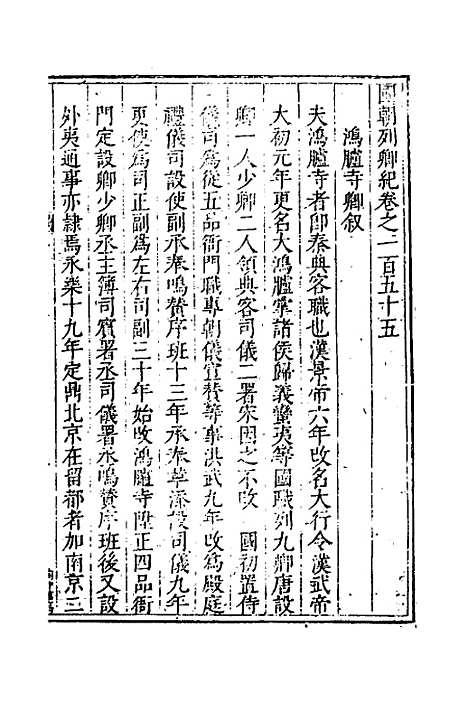 國朝列卿紀卷之一百五十五
鴻臚寺卿叙
夫鴻臚寺者即秦典客職也漢景帝六年改名大行令漢武帝
太初元年更名大鴻臚掌諸侯歸義蠻夷等國職列九卿唐設
卿一人少卿二人領典客司儀二署宋因之不改 國初置侍
儀司為從五品衙門職專朝儀宣賛等事洪武九年改為殿庭
禮儀司設使副承奉鳴賛序班十三年承奉革添設司儀九年
更使為司正副為左右司副三十年始改鴻臚寺陞正四品衙
門定設卿少卿丞主簿司賓署丞司儀署丞鳴賛序班後又設
外夷通事亦隷焉永樂十九年定鼎北京在留都者加南京二